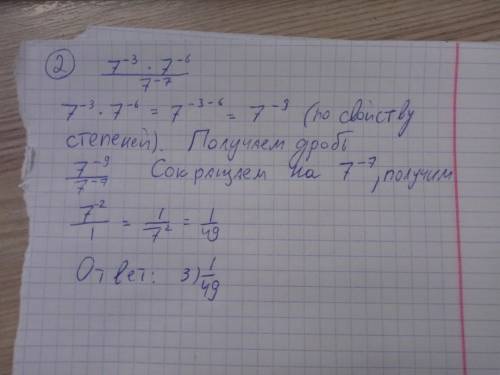 2 7⁻³ · 7⁻⁶ / 7⁻⁷
7⁻³ · 7⁻⁶ = 7⁻³⁻⁶ = 7⁻⁹ (по свойству
степеней). Получаем дробь
7⁻⁹ / 7⁻⁷ Сокращаем на 7⁻⁷, получим
7⁻² / 1 = 1 / 7² = 1 / 49
Ответ: 3) 1 / 49